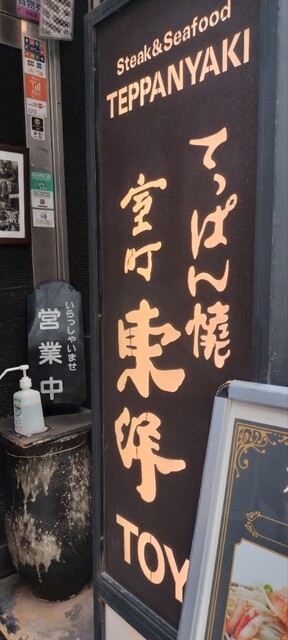 Steak&Seafood
TEPPANYAKI
てっぱん燒
室町
東洋
TOY
いらっしゃいませ
営業中